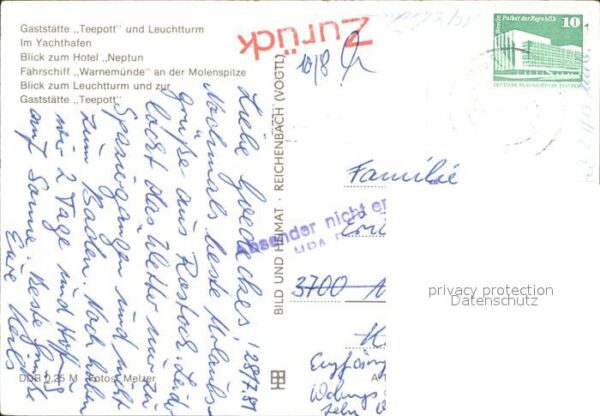 Gaststätte „Teepott" und Leuchtturm
Im Yachthafen
Blick zum Hotel „Neptun
Fährschiff „Warnemünde" an der Molenspitze
Blick zum Leuchtturm und zur
Gaststätte „Teepott"
Zurück
10/8
Berlin, Palast der Republik
10
DEUTSCHE DEMOKRATISCHE REPUBLIK
28.7.81
Liebe
Nochmals beste Urlaubs-
grüße aus Rostock. Leider
lässt das Wetter nur zu
Spaziergängen und nicht
zum Baden. Noch haben
wir 2 Tage und hoffen
auf Sonne. Beste Grüße
Eure
BILD UND HEIMAT · REICHENBACH (VOGTL)
Absender nicht er
Familie
3700
Empfäng
Wohnungs
DDR 0,25 M Fotos: Melzer
A 1
privacy protection
Datenschutz